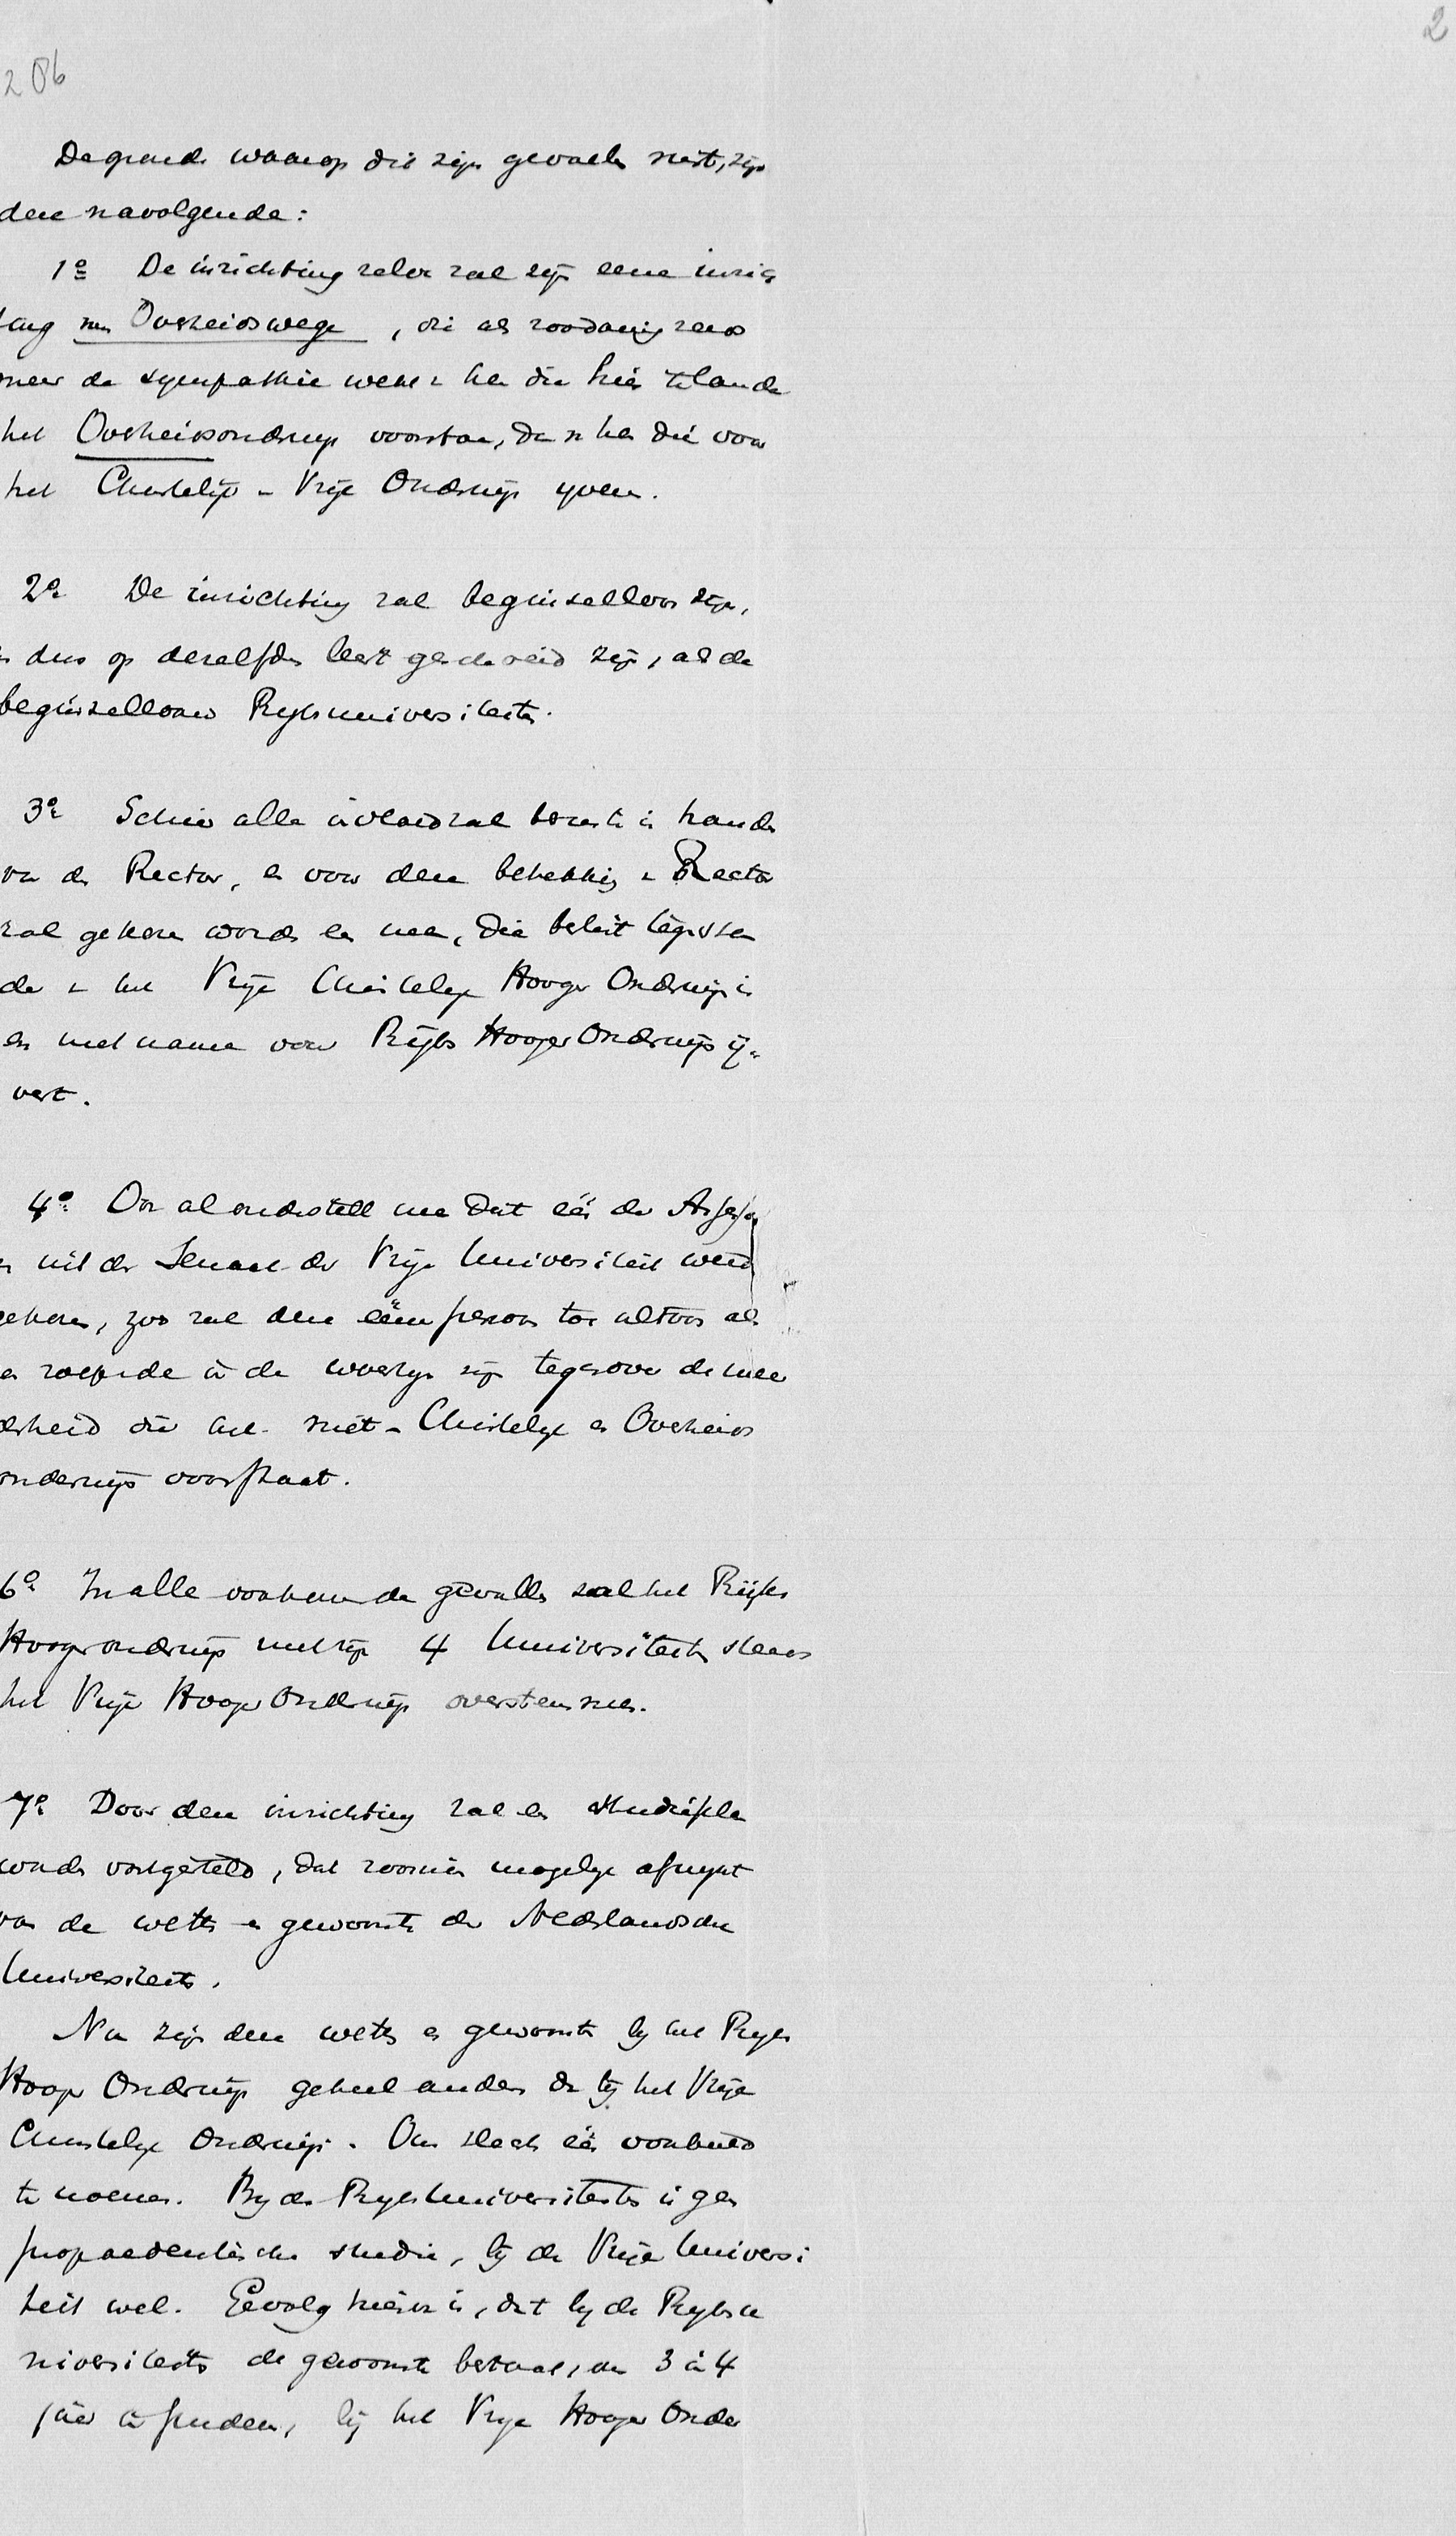 2
206
De gronden waarop dit zijn gevoelen rust, zijn
deze navolgende:
1º De inrichting zelve zal zijn eene inrich
ting van Overheidswege, die als zoodanig reeds
meer de sympathie wekt van hen die hier te lande
het Overheidsonderwijs voorstaan, dan van hen die voor
het Christelijk - Vrije Onderwijs ijveren.
2º De inrichting zal beginselloos zijn,
en dus op dezelfden leest geschoeid zijn, als de
beginsellooze Rijksuniversiteiten.
3º Schier alle invloed zal berusten in handen
van den Rector, en voor deze betrekking van Rector
zal gekozen worden een man, die beslist tegenstan
der van het Vrije Christelijk Hooger Onderwijs is
en met name voor Rijks Hooger Onderwijs ij-
vert.
4º Ook al onderstelt men dat één der
uit den Senaat der Vrije Universiteit werd
gekozen, zoo zal deze ééne persoon toch altoos als
een roepende in de woestijn zijn tegenover de meer
derheid die het niet-Christelijk en Overheids
onderwijs voorstaat.
6º In alle voorkomende gevallen zal het Rijks
Hooger onderwijs met zijn 4 Universiteiten steeds
het Vrije Hooger Onderwijs overstemmen.
7º Door deze inrichting zal een studieplan
worden vastgesteld, dat zoo min mogelijk afwijkt
van de wetten en gewoonten der Nederlandsche
Universiteiten.
Nu zijn deze wetten en gewoonten bij het Rijks
Hooger Onderwijs geheel anders dan bij het Vrije
Christelijk Onderwijs. Om slechts één voorbeeld
te noemen. Bij de Rijks Universiteiten is geen
propaedeutische studie, bij de Vrije Universi
teit wel. Gevolg hiervan is, dat bij de Rijksu
niversiteiten de gewoonte bestaat, om 3 à 4
jaar te studeeren, bij het Vrije Hooger Onder